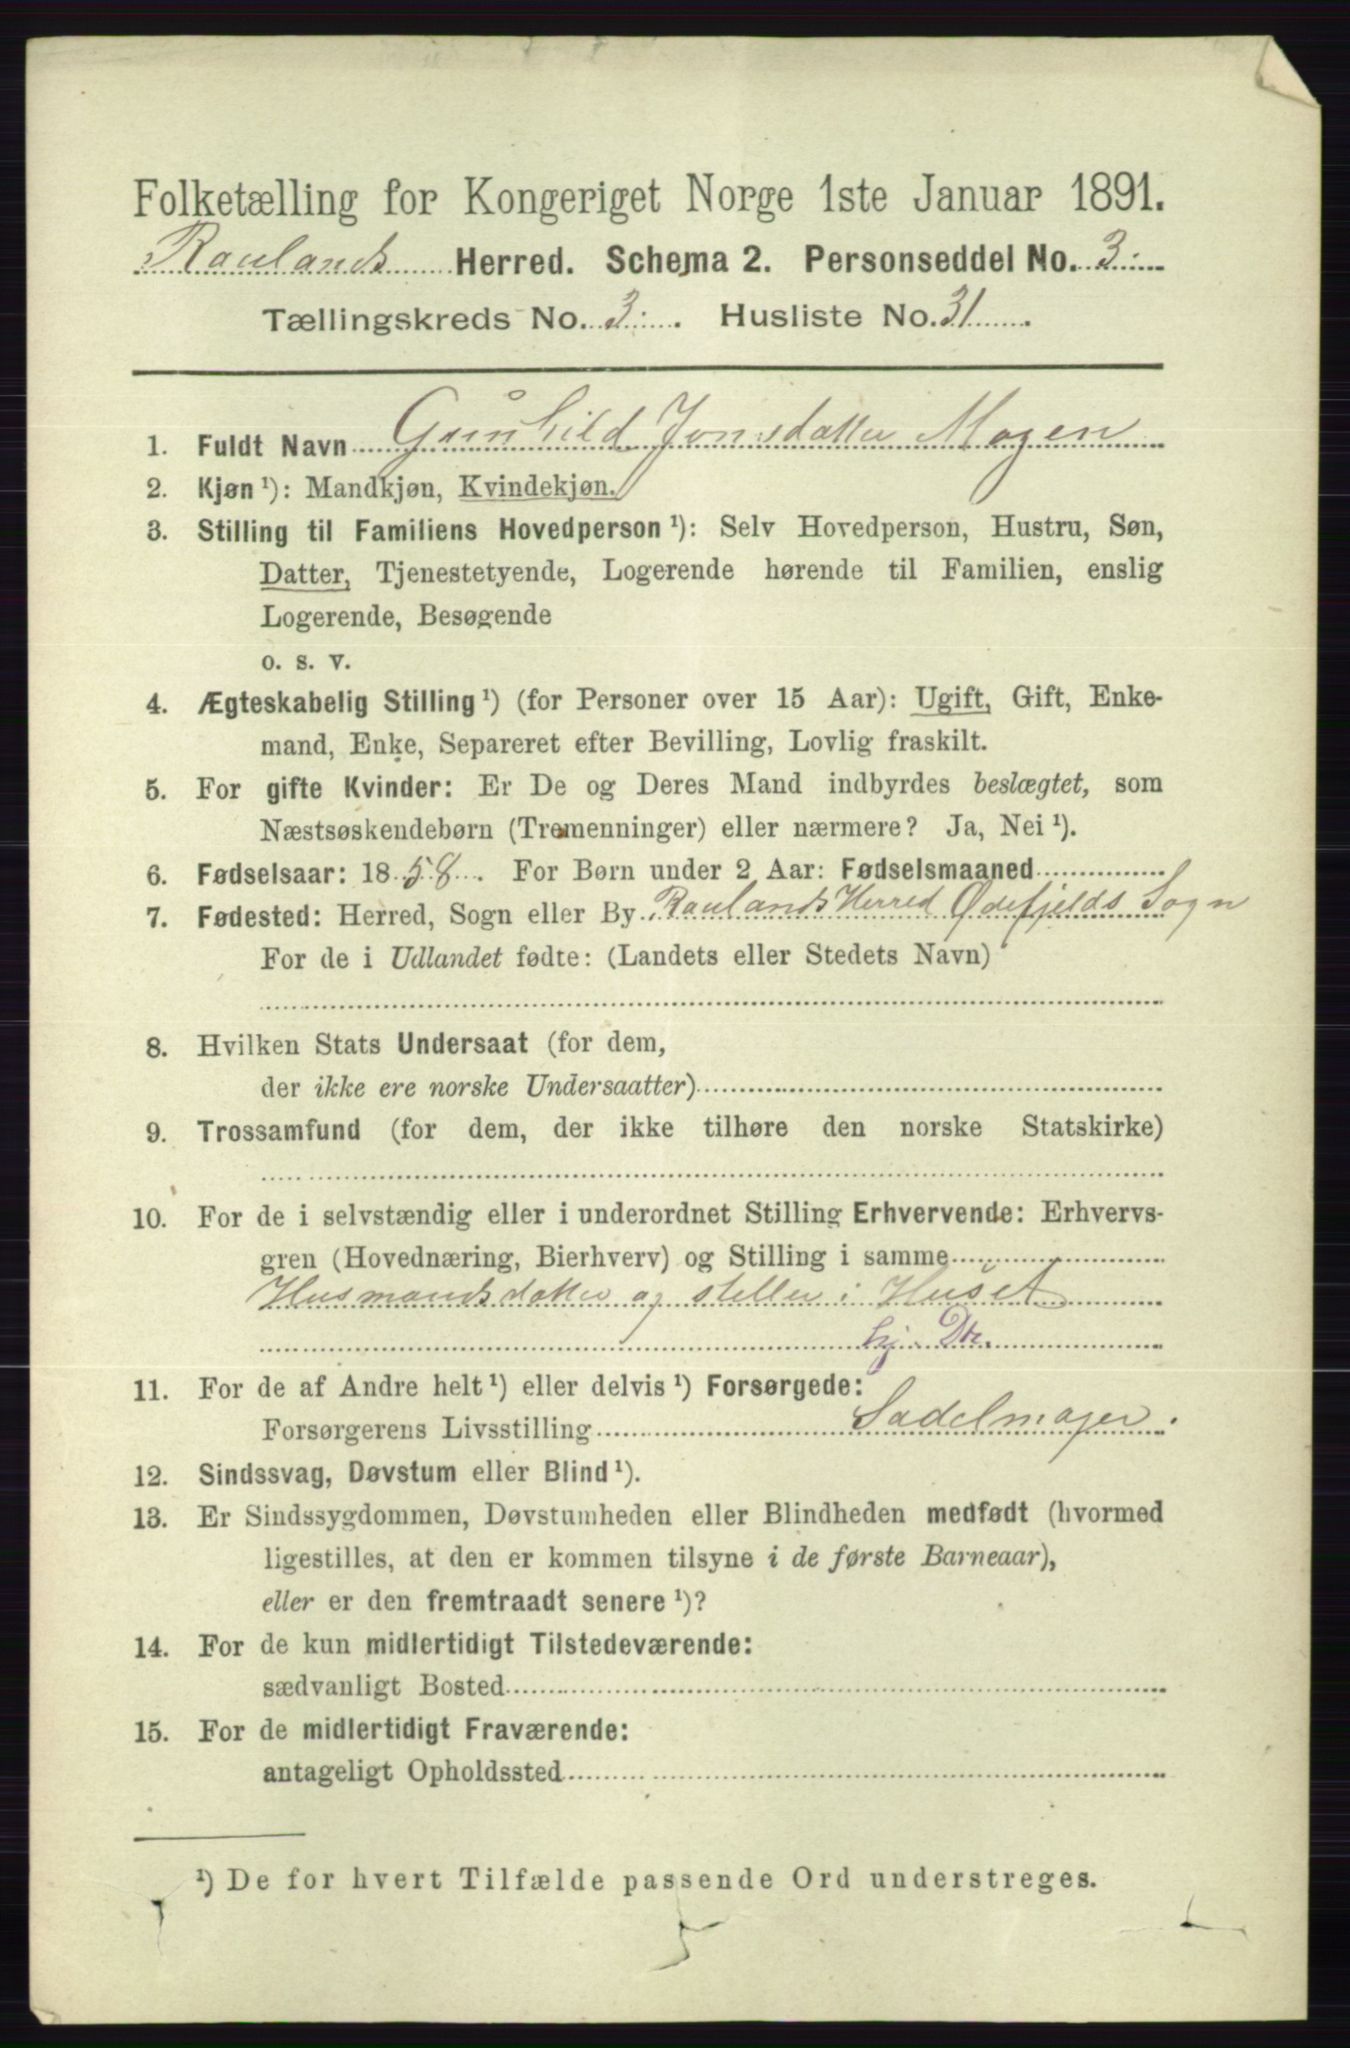 Folketælling for Kongeriget Norge 1ste Januar 1891.
Raulands Herred. Schema 2. Personseddel No. 3.
Tællingskreds No. 3. Husliste No. 31.
1. Fuldt Navn Gunhild Jonsdatter Mogen
2. Kjøn ¹): Mandkjøn, Kvindekjøn.
3. Stilling til Familiens Hovedperson ¹): Selv Hovedperson, Hustru, Søn,
Datter, Tjenestetyende, Logerende hørende til Familien, enslig
Logerende, Besøgende
o. s. v.
4. Ægteskabelig Stilling ¹) (for Personer over 15 Aar): Ugift, Gift, Enke-
mand, Enke, Separeret efter Bevilling, Lovlig fraskilt.
5. For gifte Kvinder: Er De og Deres Mand indbyrdes beslægtet, som
Næstsøskendebørn (Tremenninger) eller nærmere? Ja, Nei ¹).
6. Fødselsaar: 1858. For Børn under 2 Aar: Fødselsmaaned
7. Fødested: Herred, Sogn eller By Raulands Herred Ødefjelds Sogn
For de i Udlandet fødte: (Landets eller Stedets Navn)
8. Hvilken Stats Undersaat (for dem,
der ikke ere norske Undersaatter)
9. Trossamfund (for dem, der ikke tilhøre den norske Statskirke)
10. For de i selvstændig eller i underordnet Stilling Erhvervende: Erhvervs-
gren (Hovednæring, Bierhverv) og Stilling i samme
Husmandsdatter og steller i Huset
hj. Dtr.
11. For de af Andre helt ¹) eller delvis ¹) Forsørgede:
Forsørgerens Livsstilling Sadelmager.
12. Sindssvag, Døvstum eller Blind ¹).
13. Er Sindssygdommen, Døvstumheden eller Blindheden medfødt (hvormed
ligestilles, at den er kommen tilsyne i de første Barneaar),
eller er den fremtraadt senere ¹)?
14. For de kun midlertidigt Tilstedeværende:
sædvanligt Bosted
15. For de midlertidigt Fraværende:
antageligt Opholdssted
¹) De for hvert Tilfælde passende Ord understreges.